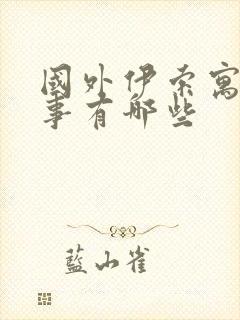 國外伊索寓
事有哪些
藍山雀